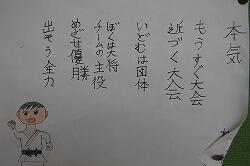 本気
もうすぐ大会
近づく大会
いどむは団体
ぼくは大将
チームの主役
めざせ優勝
出そう全力